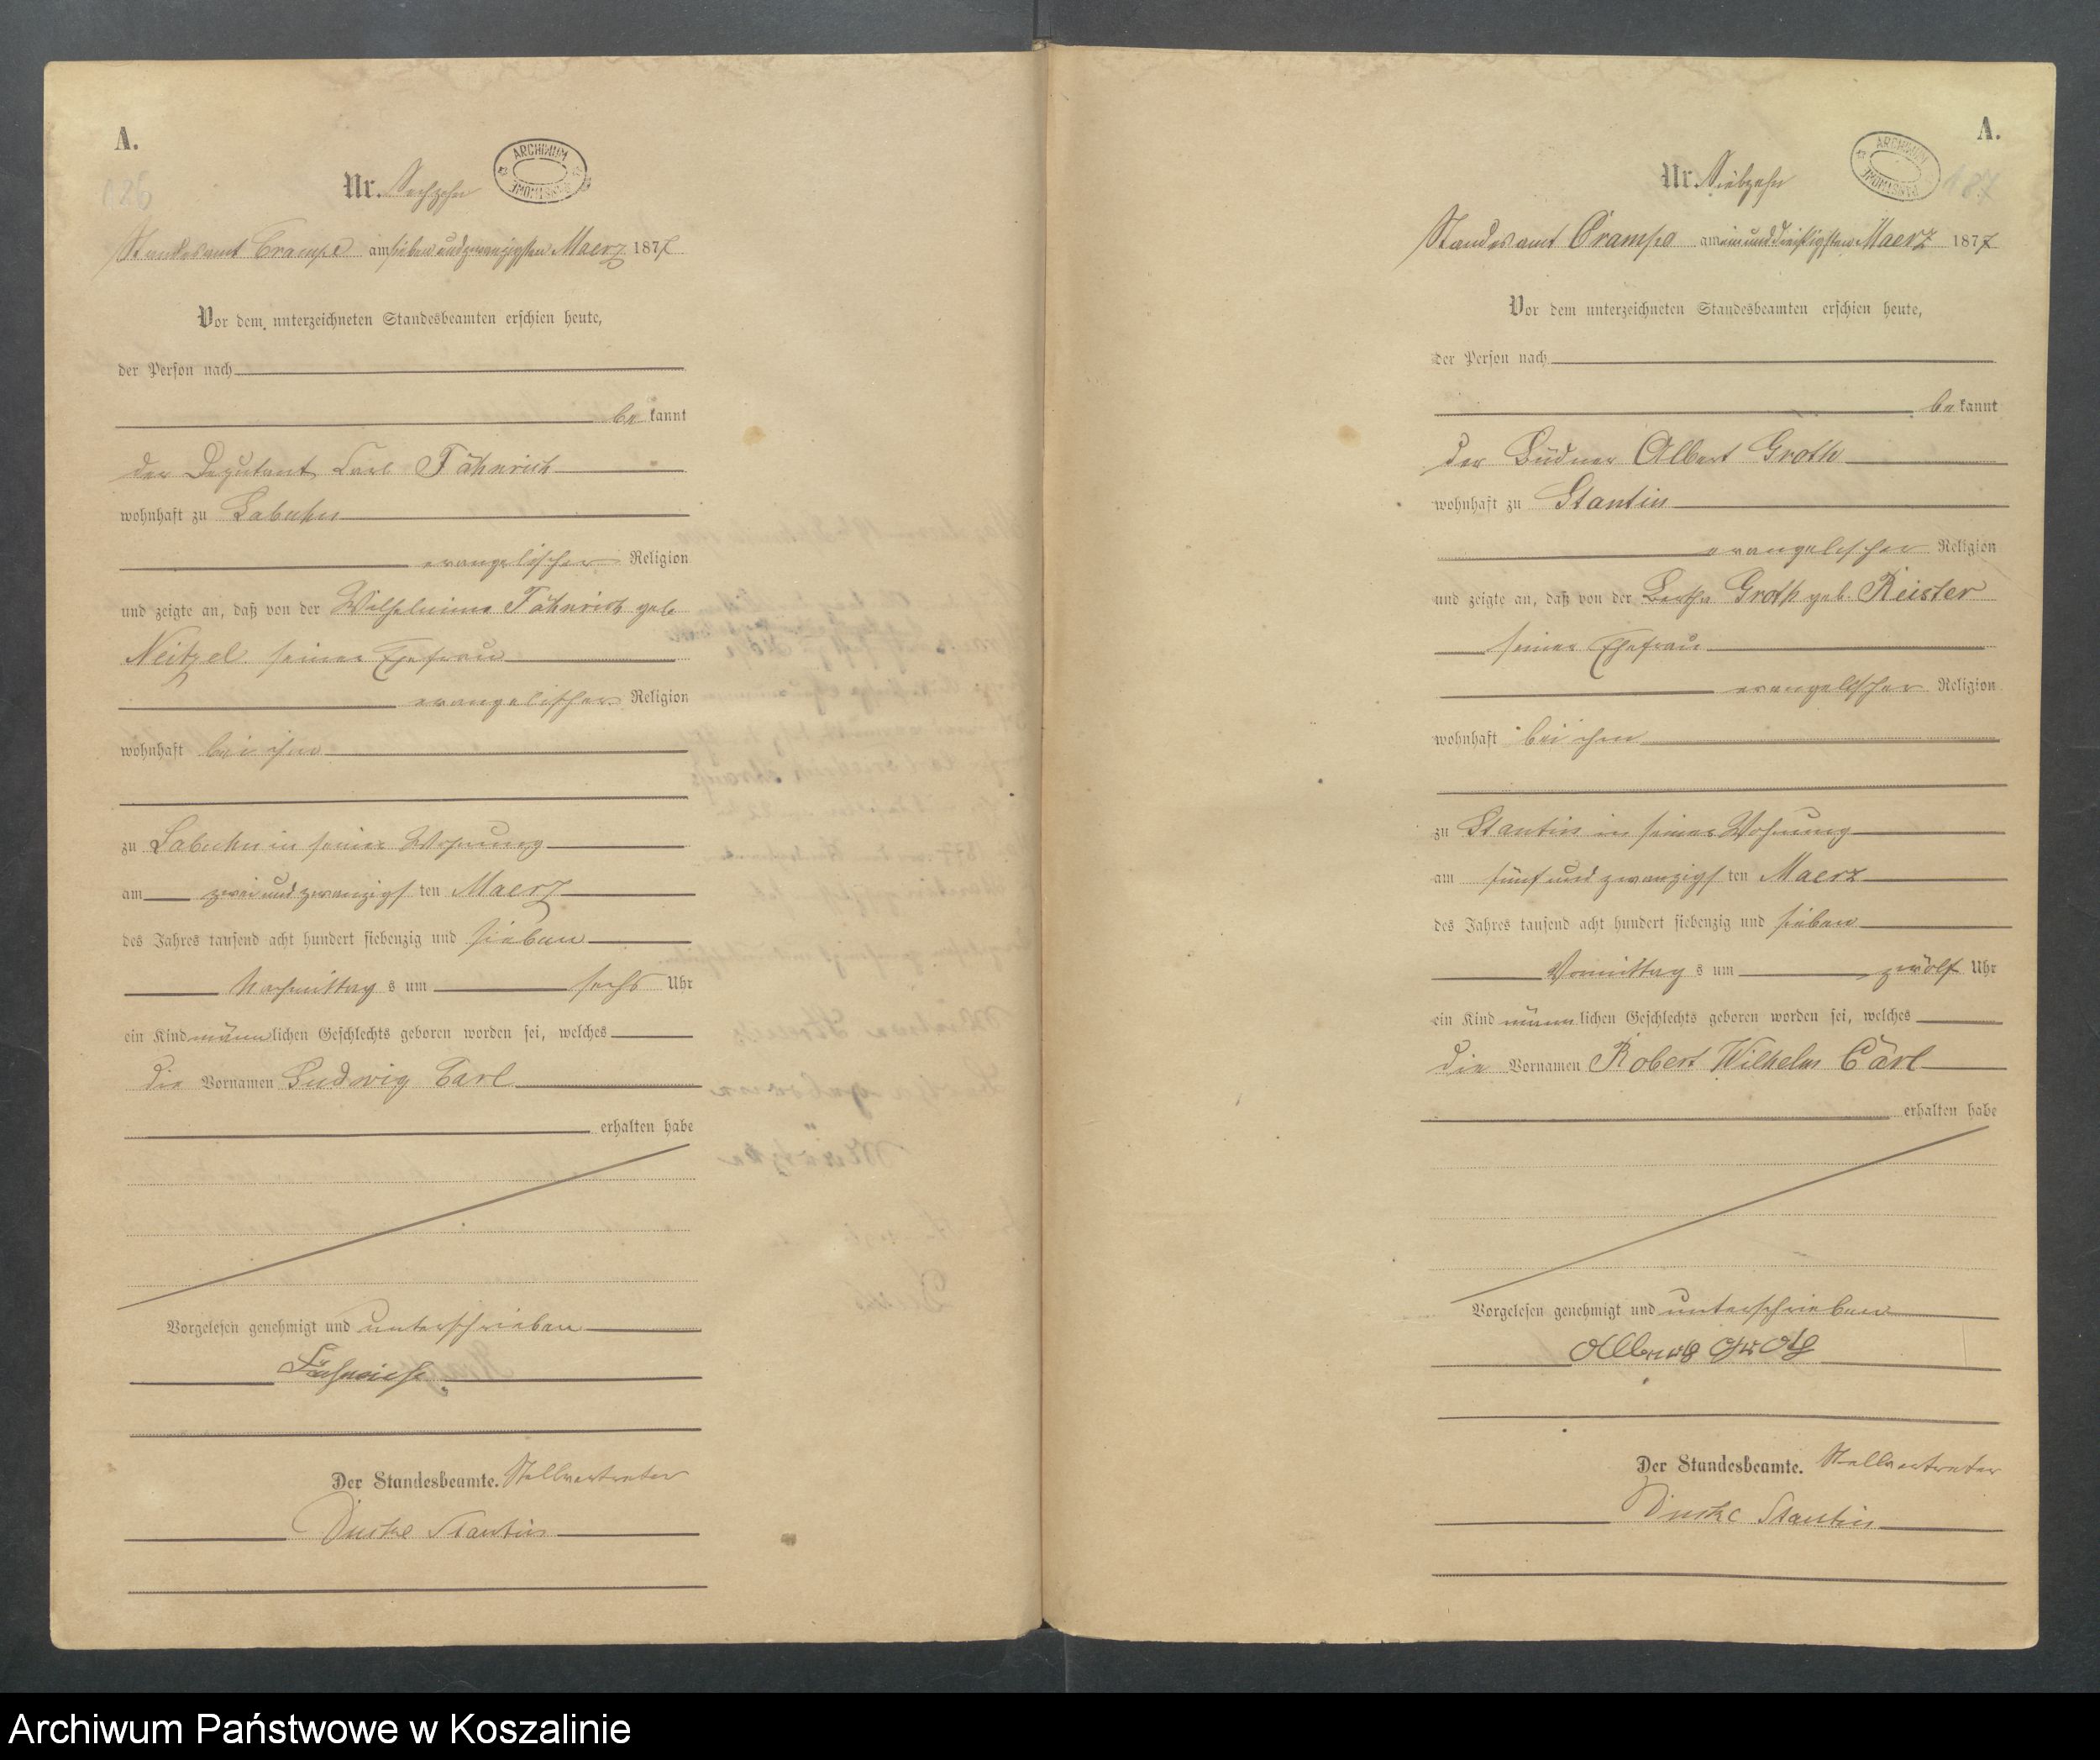 A.
Nr. Sechzehn
ARCHIWUM PAŃSTWOWE
Standesamt Crampe am sieben und zwanzigsten Maerz 1877
Vor dem unterzeichneten Standesbeamten erschien heute,
der Person nach
be kannt
der Deputant Carl Fähnrich
wohnhaft zu Labuhn
evangelischer Religion
und zeigte an, daß von der Wilhelmine Fähnrich geb.
Neitzel seiner Ehefrau
evangelischer Religion
wohnhaft bei ihm
zu Labuhn in seiner Wohnung
am zwei und zwanzigs ten Maerz
des Jahres tausend acht hundert siebenzig und sieben
Nachmittag s um sechs Uhr
ein Kind männ lichen Geschlechts geboren worden sei, welches
die Vornamen Ludwig Carl
erhalten habe
Vorgelesen genehmigt und unterschrieben
Fähnrich
Der Standesbeamte. Stellvertreter
Stantin
A.
187
Nr. Siebzehn
ARCHIWUM PAŃSTWOWE
Standesamt Crampe am ein und dreißigsten Maerz 1877
Vor dem unterzeichneten Standesbeamten erschien heute,
der Person nach
be kannt
der Büdner Albert Groth
wohnhaft zu Stantin
evangelischer Religion
und zeigte an, daß von der Bertha Groth geb. Reister
seiner Ehefrau
evangelischer Religion
wohnhaft bei ihm
zu Stantin in seiner Wohnung
am fünf und zwanzigs ten Maerz
des Jahres tausend acht hundert siebenzig und sieben
Vormittag s um zwölf Uhr
ein Kind männ lichen Geschlechts geboren worden sei, welches
die Vornamen Robert Wilhelm Carl
erhalten habe
Vorgelesen genehmigt und unterschrieben
Albert Groth
Der Standesbeamte. Stellvertreter
Stantin
Archiwum Państwowe w Koszalinie